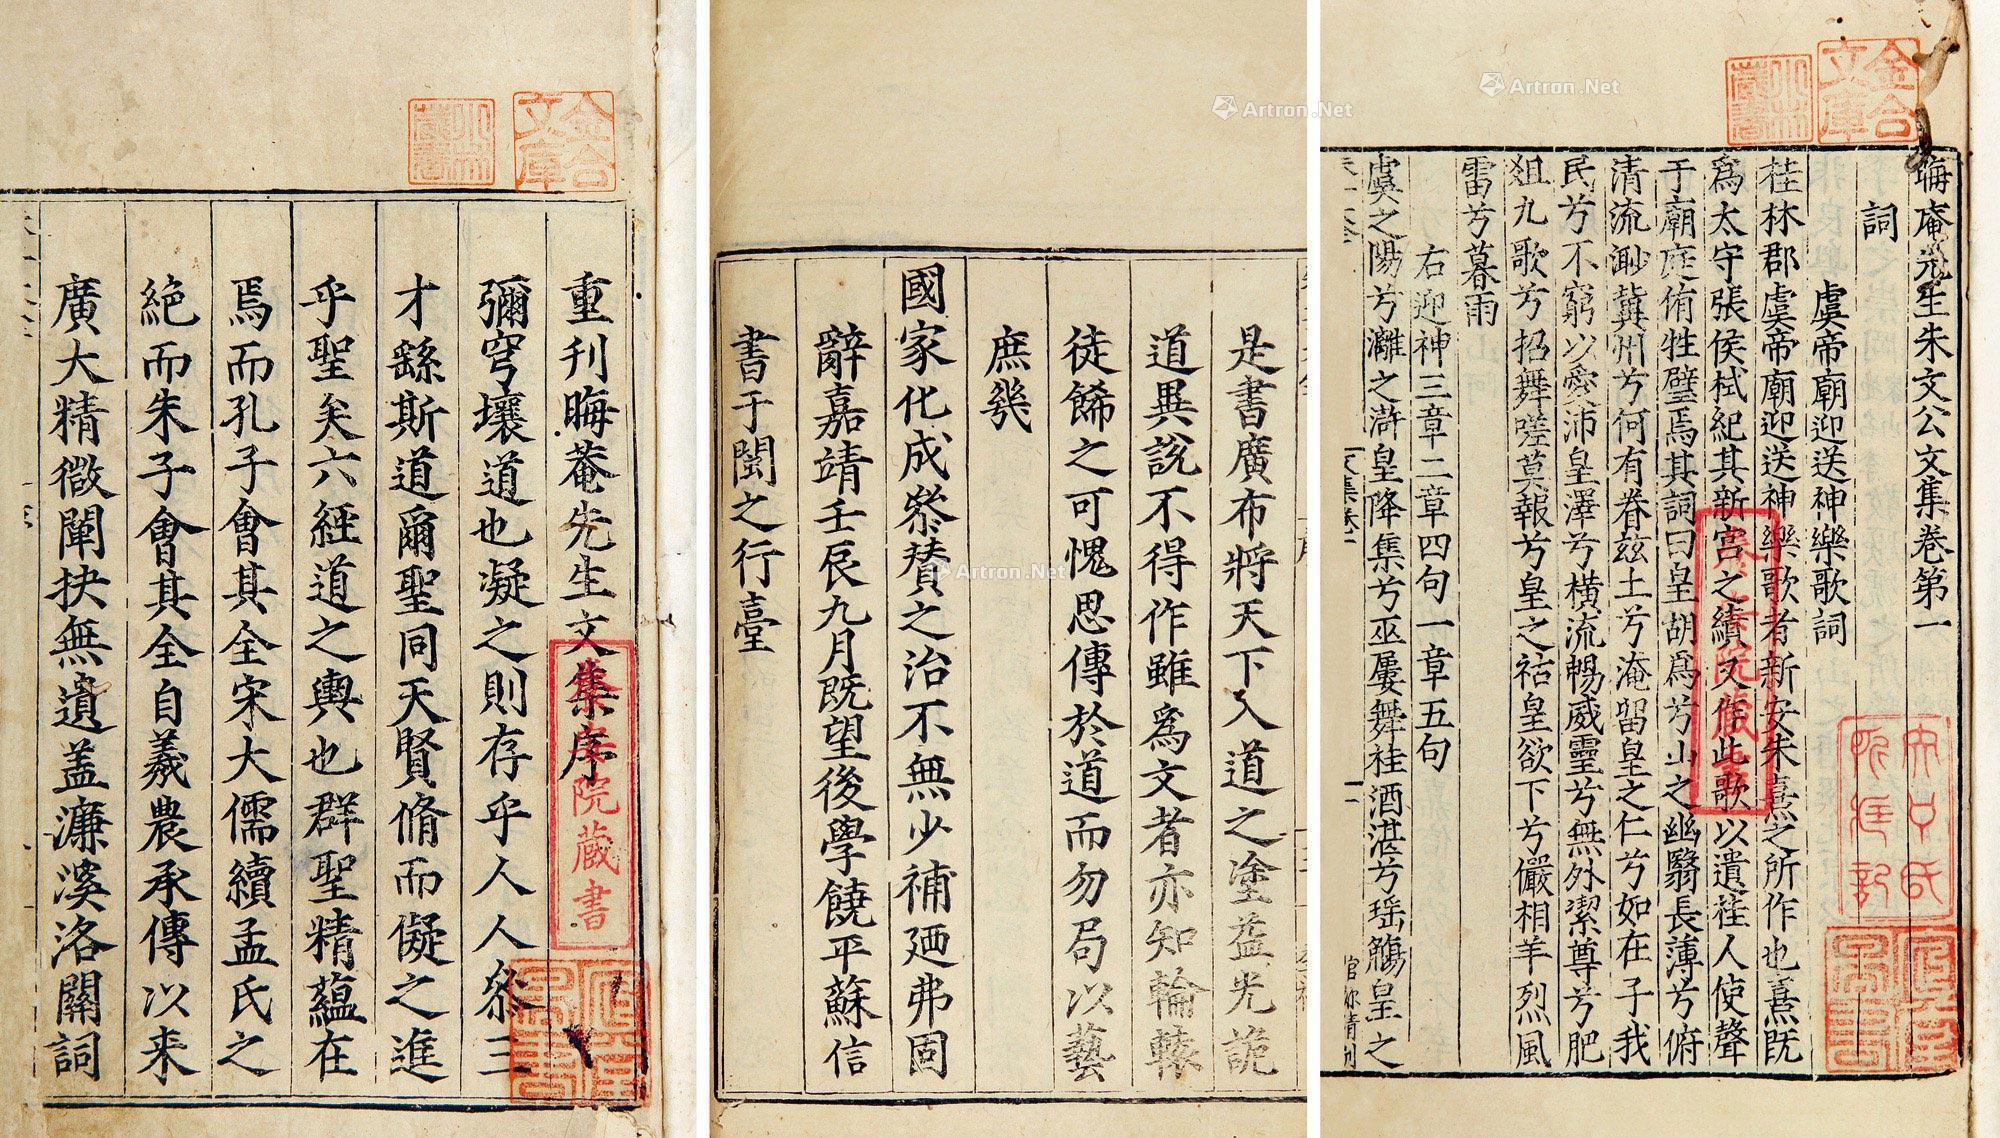 重刊晦菴先生文集序
彌穹壤道也凝之則存乎人人叅三
才繇斯道爾聖同天賢脩而儗之進
乎聖矣六經道之輿也群聖精蘊在
焉而孔子會其全宋大儒續孟氏之
絕而朱子會其全自羲農承傳以来
廣大精微闡抉無遺盖濂溪洛關詞
金合
文庫
小林
藏書
院藏書
是書廣布將天下入道之塗益光詭
道異說不得作雖為文者亦知輪轅
徒餙之可愧思傳於道而勿局以藝
庶幾
國家化成叅賛之治不無少補廼弗固
辭嘉靖壬辰九月既望後學饒平蘇信
書于閩之行臺
晦庵先生朱文公文集卷第一
詞
虞帝廟迎送神樂歌詞
桂林郡虞帝廟迎送神樂歌者新安朱熹之所作也熹既
為太守張侯栻紀其新宮之績又作此歌以遺桂人使聲
于廟庭侑牲璧焉其詞曰皇胡為兮山之幽翳長薄兮俯
清流渺兾州兮何有眷玆土兮淹留皇之仁兮如在子我
民兮不窮以愛沛皇澤兮橫流暢威靈兮無外潔尊兮肥
俎九歌兮招舞嗟莫報兮皇之祜皇欲下兮儼相羊烈風
雷兮暮雨
右迎神三章二章四句一章五句
虞之陽兮灕之滸皇降集兮巫屢舞桂酒湛兮瑶觴皇之
金合
文庫
小林
藏書
院藏
Artron.Net
Artron.Net
Artron.Net